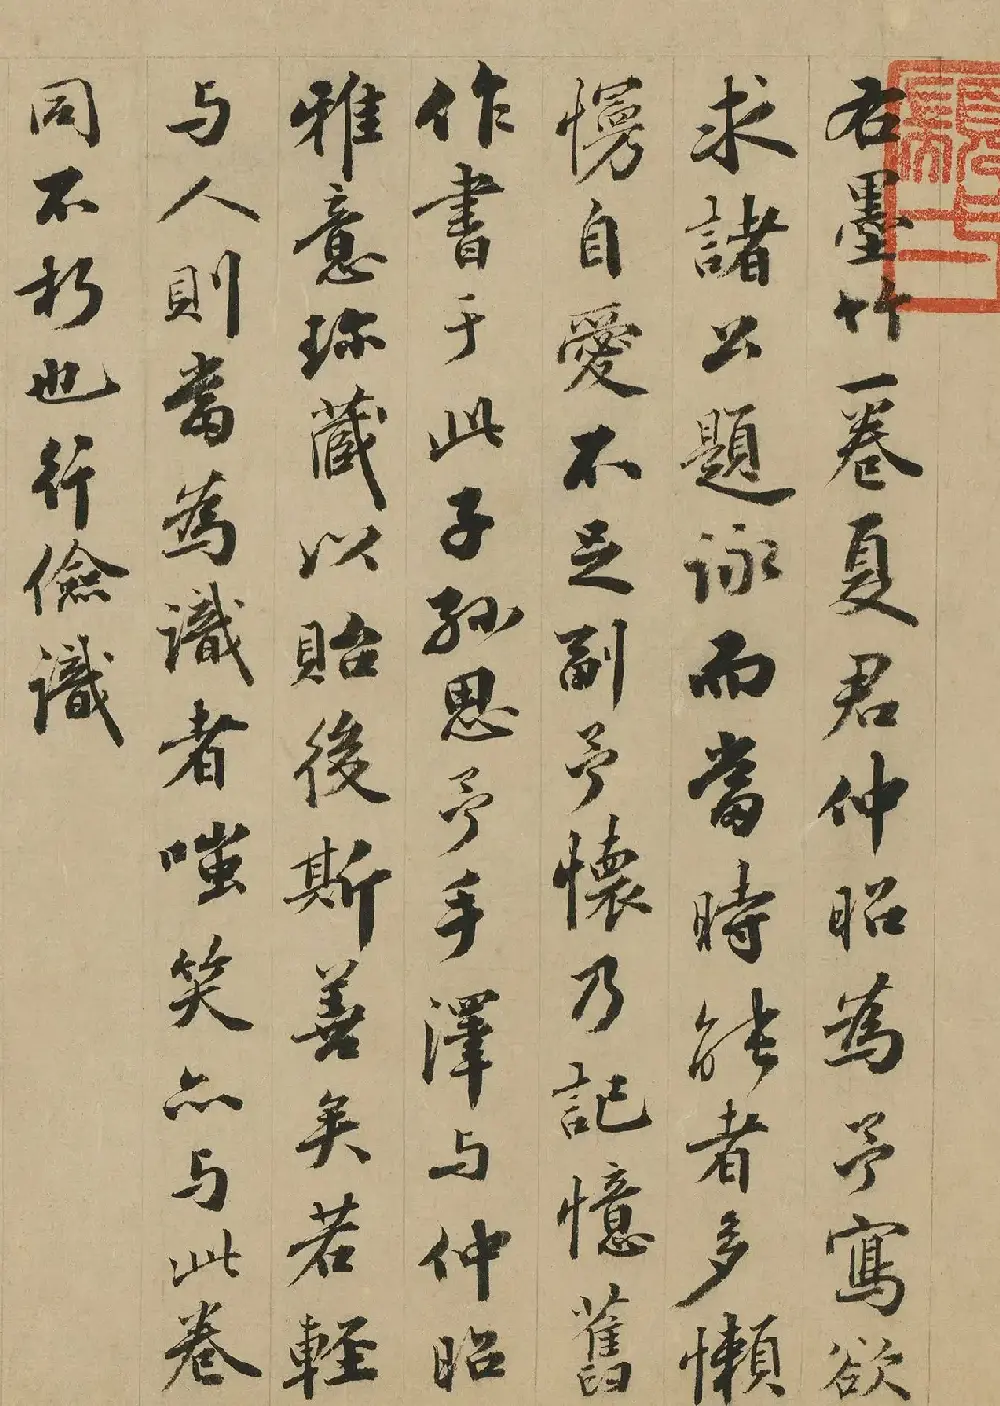 右墨竹一卷夏君仲昭為予寫欲
求諸公題詠而當時能者多懶
慢自愛不足副予懷乃記憶舊
作書于此子孫思予手澤与仲昭
雅意珎藏以貽後斯善矣若輕
与人則當為識者嗤笑亦与此卷
同不朽也行儉識